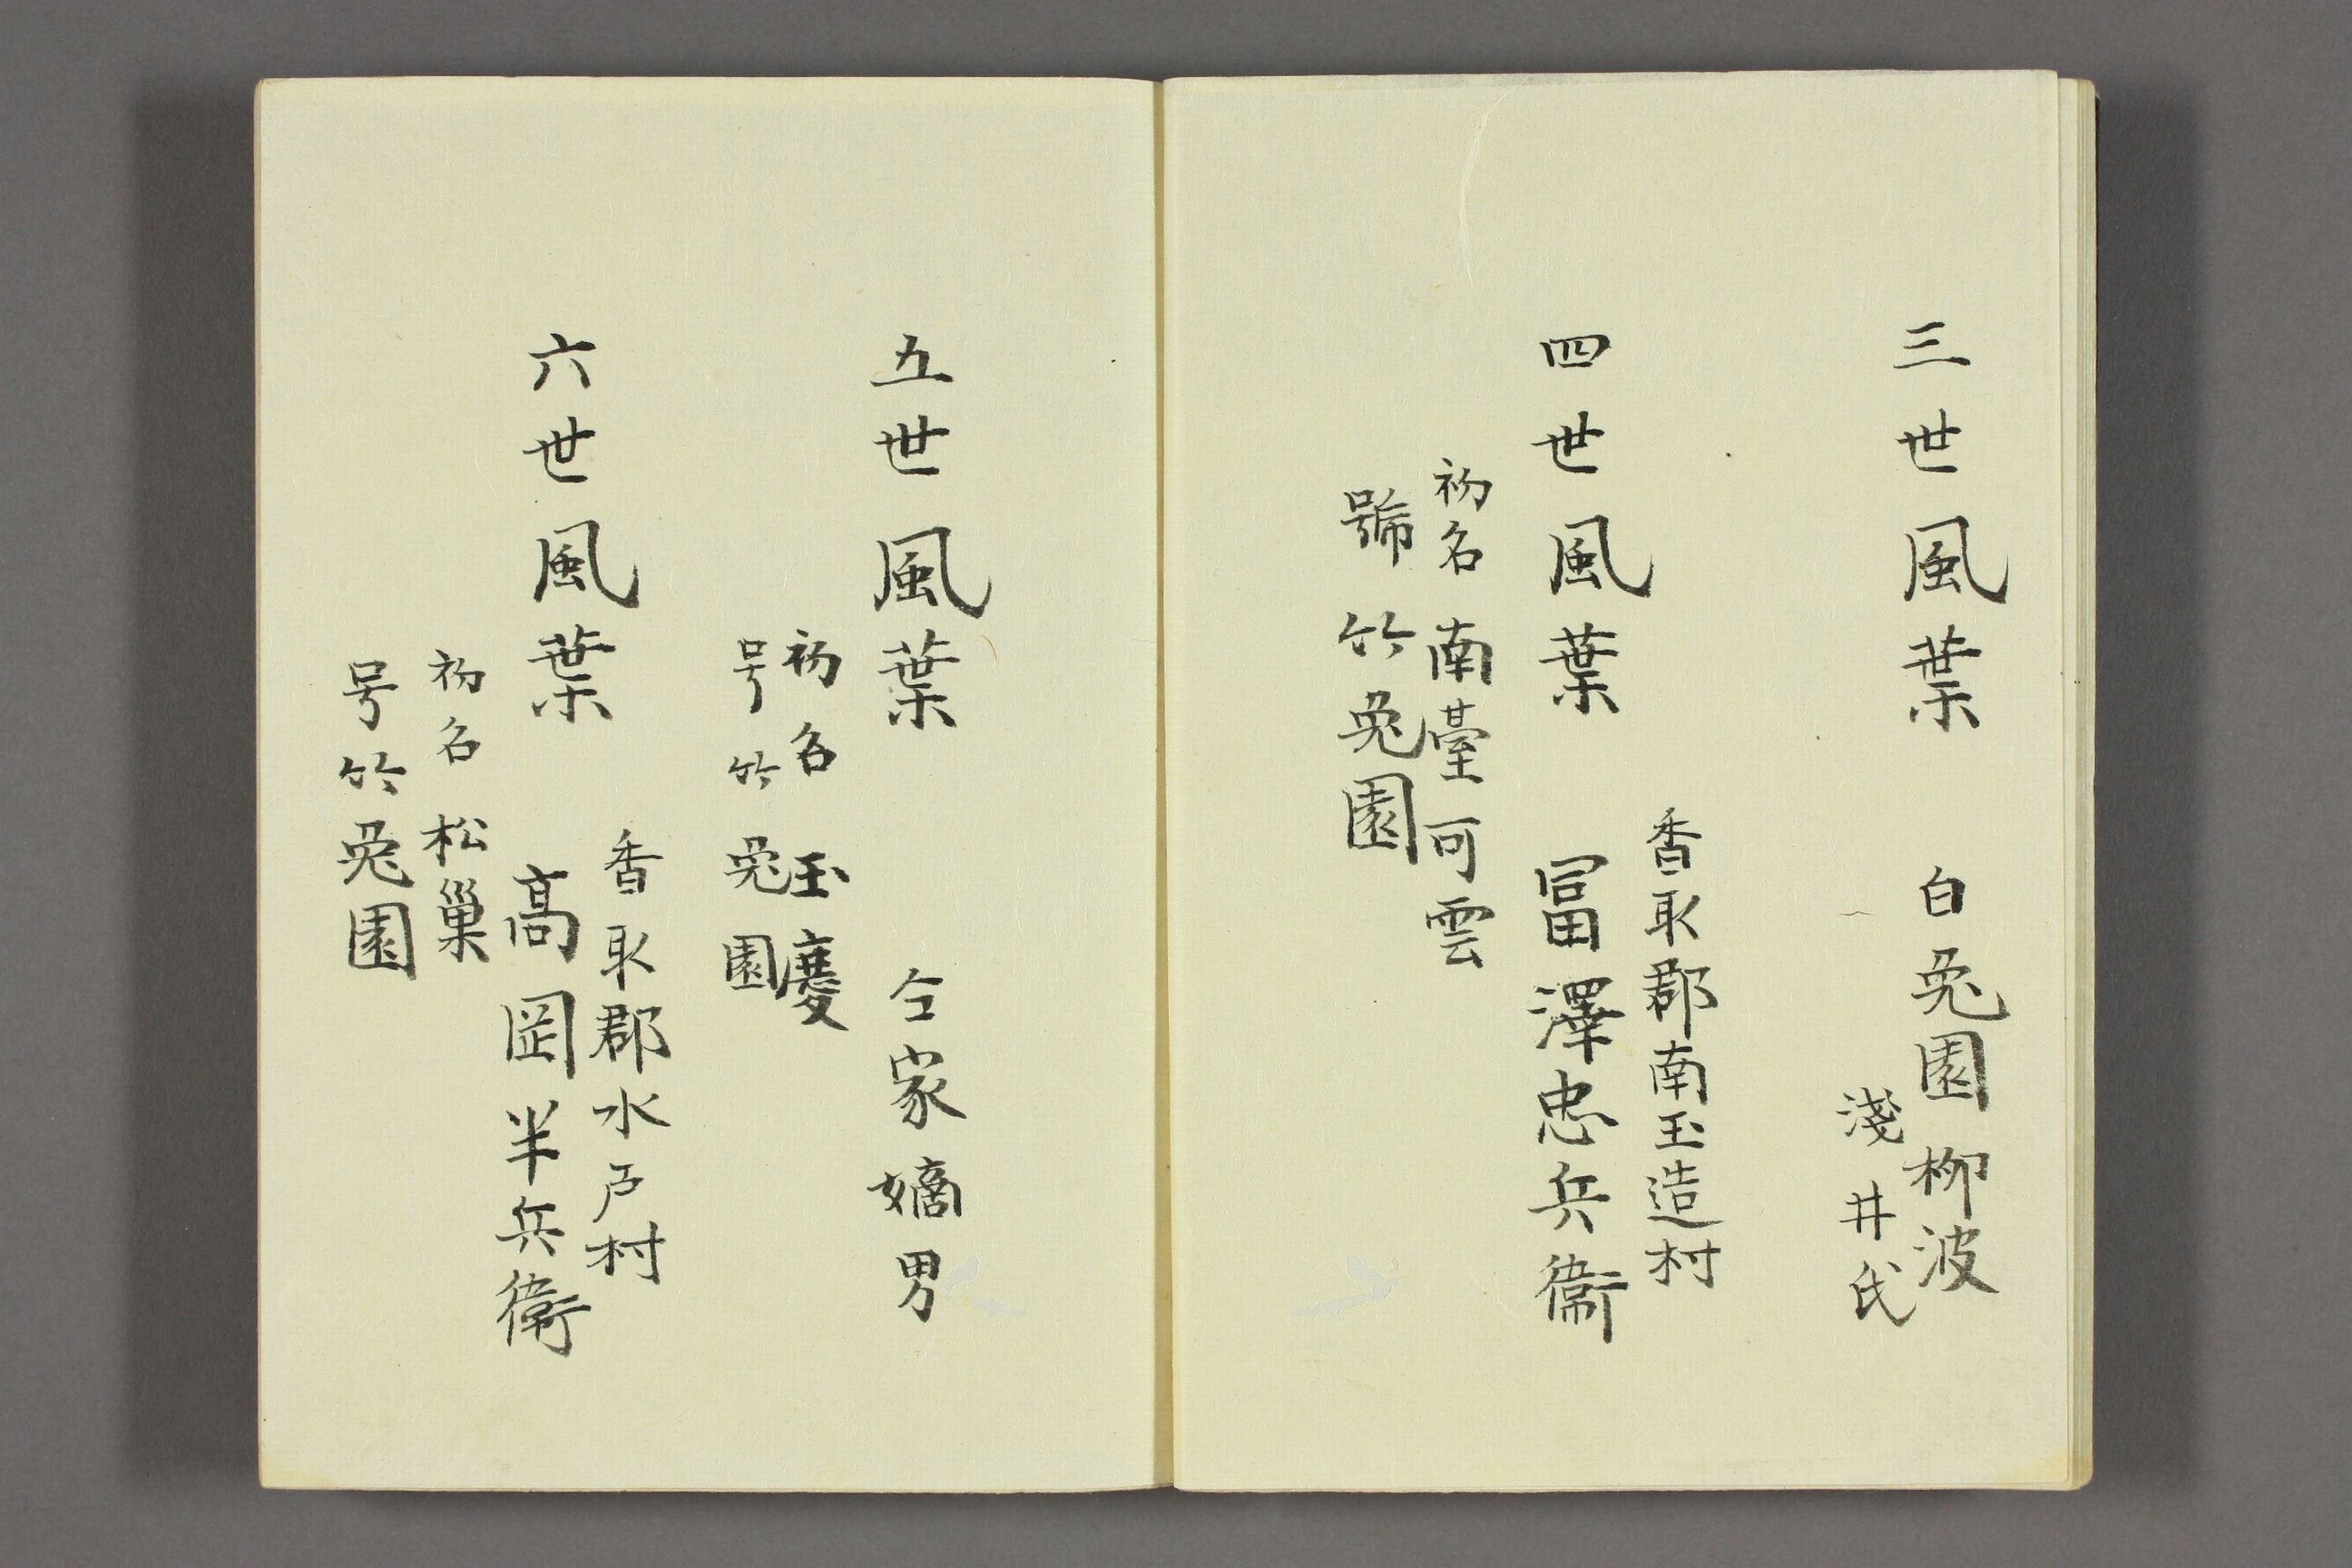 三世風葉 白兎園柳波
淺井氏
香取郡南玉造村
四世風葉 冨澤忠兵衞
初名南臺可雲
號竹兎園
五世風葉 仝家嫡男
初名玉慶
号竹兎園
香取郡水戸村
六世風葉 高岡半兵衛
初名松巢
号竹兎園